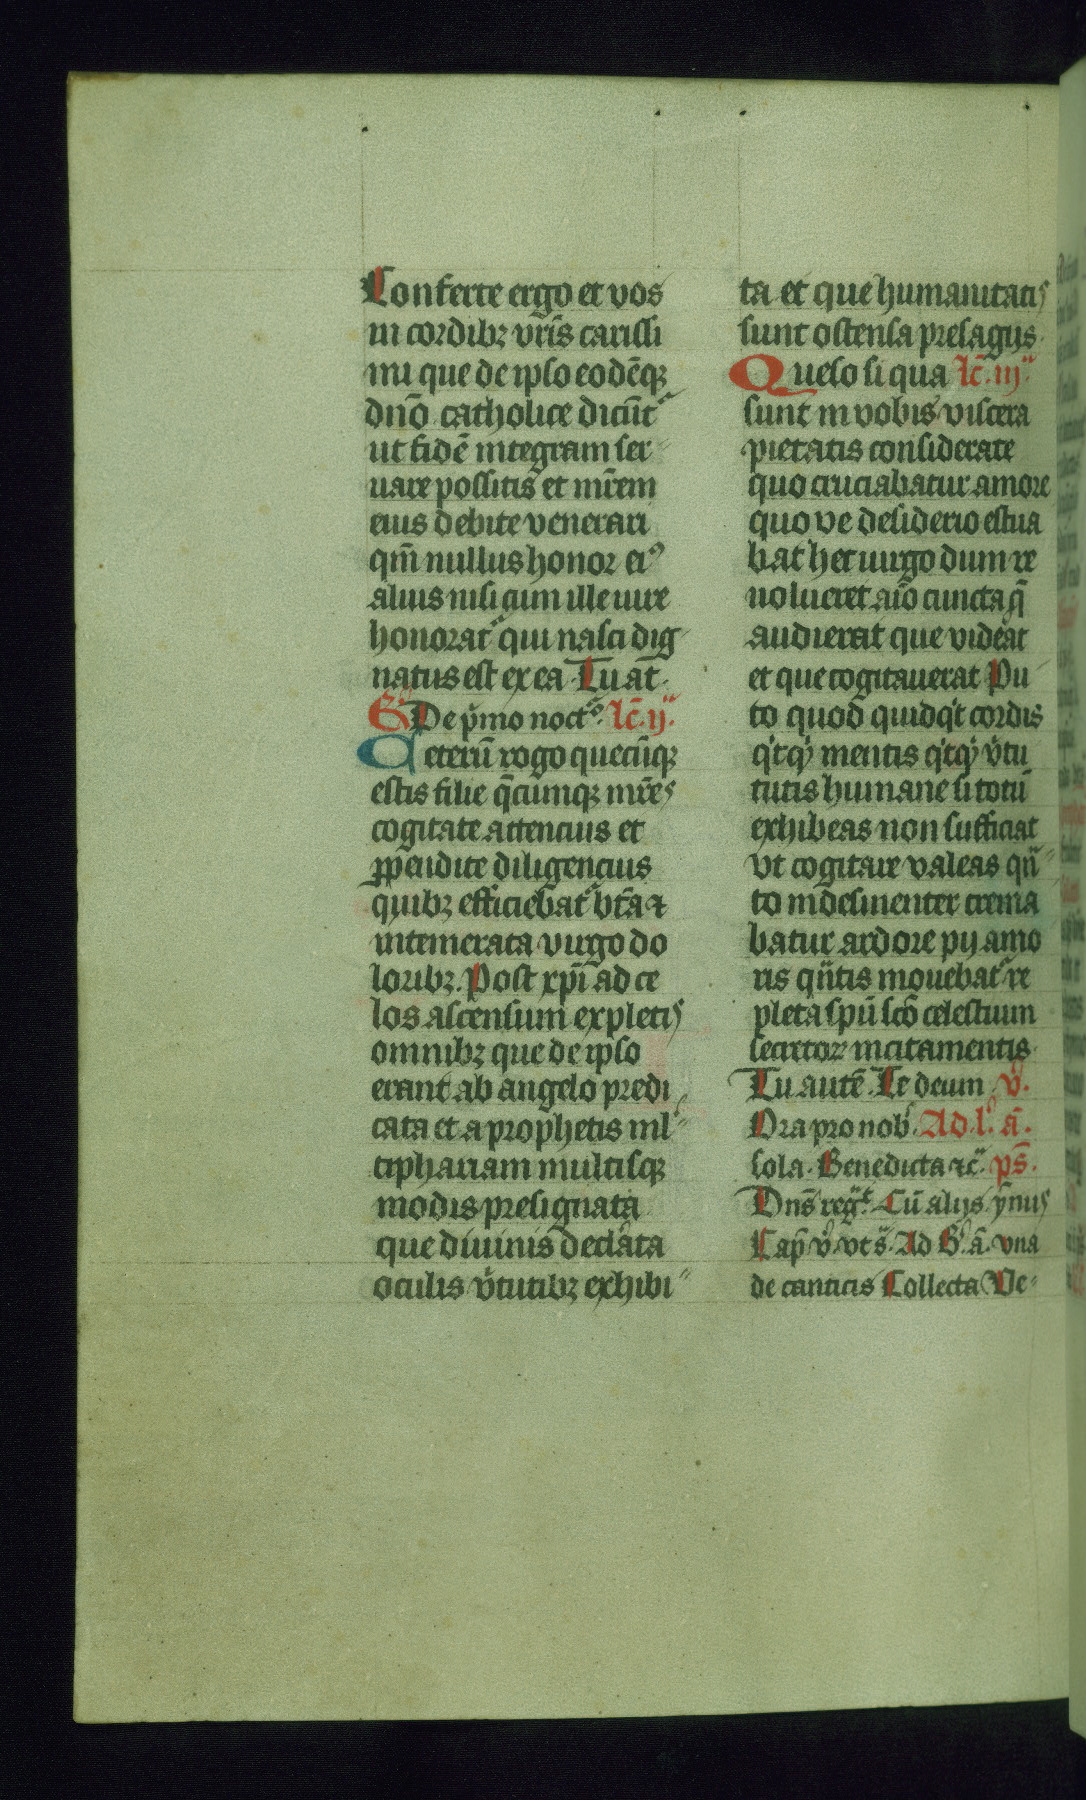 Conferte ergo et vos
in cordibꝫ vr̄is carissi
mi que de ipso eodēqꝫ
dnō catholice dicūt᷑
ut fidē integram ser
uare possitis et mr̄em
eius debite venerari
qm̄ nullus honor eiꝰ
alius nisi cum ille iure
honorat᷑ qui nasci dig
natus est ex ea Tu at̄
De pͥmo noctͦ. lc̄. ij᷑.
Ceterū rogo quecūqꝫ
estis filie q̄cumqꝫ mr̄es
cogitate attencius et
ꝓpendite diligencius
quibꝫ efficiebat᷑ bt̄a ⁊
intemerata virgo do
loribꝫ. Post xpī ad ce
los ascensum expletis
omnibꝫ que de ipso
erant ab angelo predi
cata et a prophetis ml᷑
tiphariam multisqꝫ
modis presignata
que diuinis declᷓata
oculis v̓tutibꝫ exhibi
ta et que humanitatis
sunt ostensa presagijs.
Queso si qua lc̄. iij᷑
sunt in vobis viscera
pietatis considerate
quo cruciabatur amore
quo ve desiderio estua
bat hec uirgo dum re
uolueret aīo cuncta q̄
audierat que viderat
et que cogitauerat Pu
to quod quidqͥt cordis
qͥtqͥ mentis qͥtqͥ v̓tu
tutis humane si totū
exhibeas non sufficiat
vt cogitare valeas qᷓn
to indesinenter crema
batur ardore pij amo
ris qᷓntis mouebat᷑ re
pleta spū scō celestium
secretoꝝ incitamentis
Tu autē. Te deum v̓.
Ora pro nob̓. Ad l. a᷑.
sola. Benedicta ⁊c̄. ps̄.
Dns̄ regᷓt Cū alijs ymis
Cap̄ v̓. vt sᷓ. Ad B̓. ā. vna
de canticis Collecta Ve